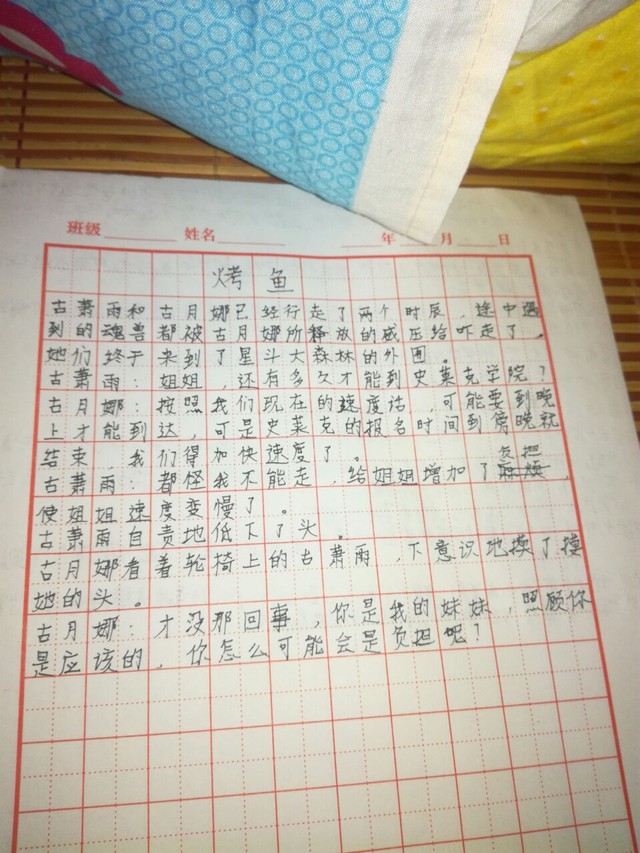 班级 姓名 年 月 日
烤鱼
古萧雨和古月娜已经行走了两个时辰，途中遇
到的魂兽都被古月娜所释放的威压给吓走了，
她们终于来到了星斗大森林的外围。
古萧雨：姐姐，还有多久才能到史莱克学院？
古月娜：按照我们现在的速度话，可能要到晚
上才能到达，可是史莱克的报名时间到傍晚就
结束，我们得加快速度了。
负担
古萧雨：都怪我不能走，给姐姐增加了麻烦，
使姐姐速度变慢了。
古萧雨自责地低下了头。
古月娜看着轮椅上的古萧雨，下意识地摸了摸
她的头。
古月娜：才没那回事，你是我的妹妹，照顾你
是应该的，你怎么可能会是负担呢？